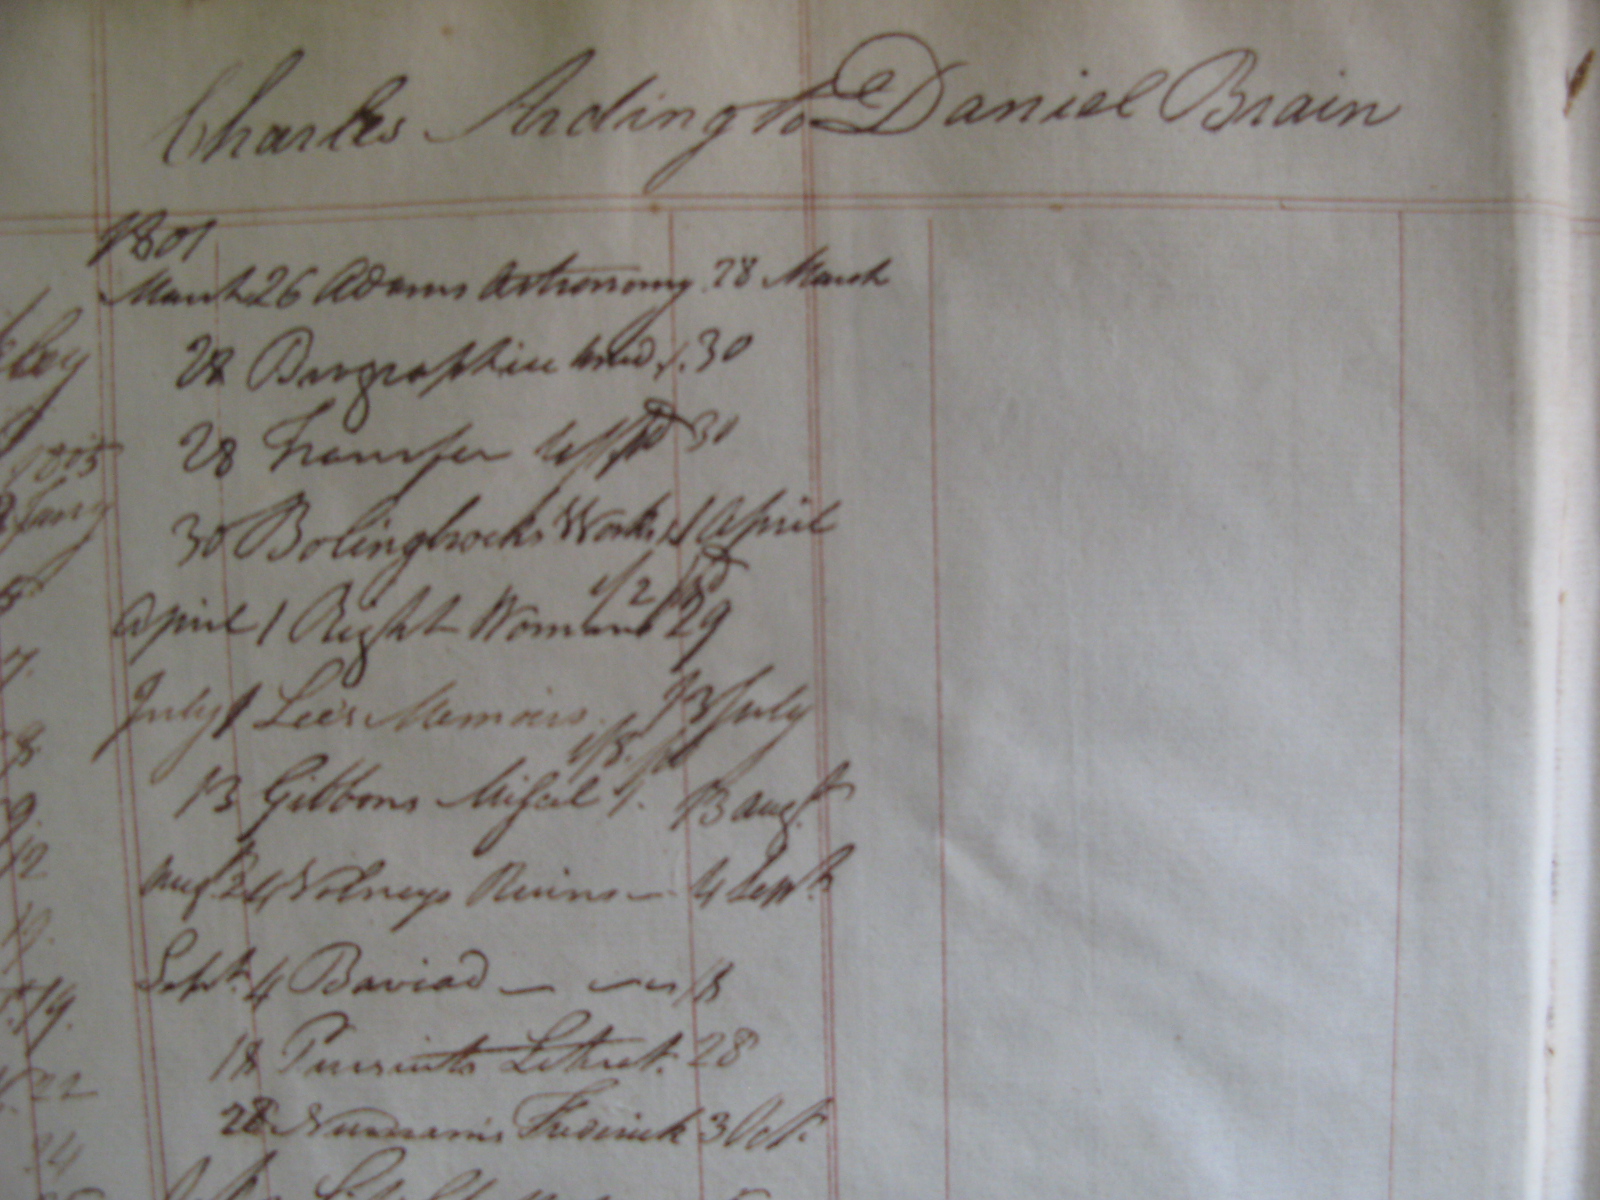 Charles Arding to Daniel Brain
1801
March 26 Adams Astronomy 28 March
28 30
28 Transfer 31
30 Bolingbrocks Works 1 April
1/2
April 1 Right Womans 29
July 1 Lee's Memoirs 13 July
1/3
13 Gibbons Miscel 1. 13 augt
Augt 24 Volneys Ruins — 4 Sept
Sept 4 Baviad — 18
18 Pursuits Literat. 28
28 Frederick 3 Oct.
kley
1805
Jany
7.
8
9.
12
19.
22
24